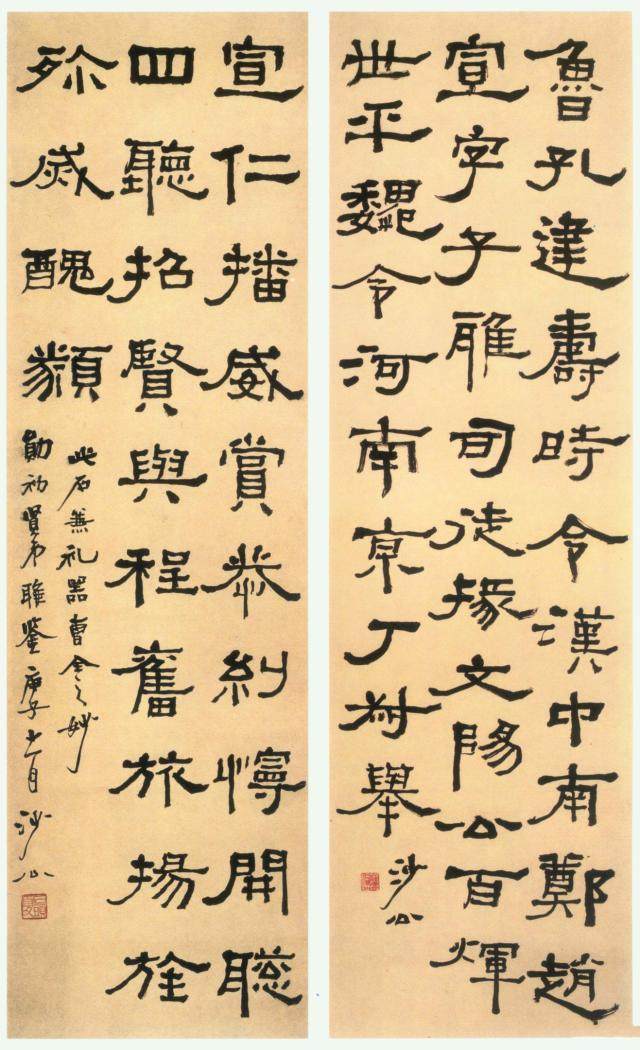 魯孔建壽時令漢中南鄭趙
宣字子雅司徒掾文陽公百煇
世平魏令河南京丁叔舉
沙公
宣仁播威賞恭糾慢開聰
四聽招賢與程奮旅揚旌
殄烕醜類
此石兼礼器曹全之妙
勛初賢弟雅鉴庚子十一月沙公